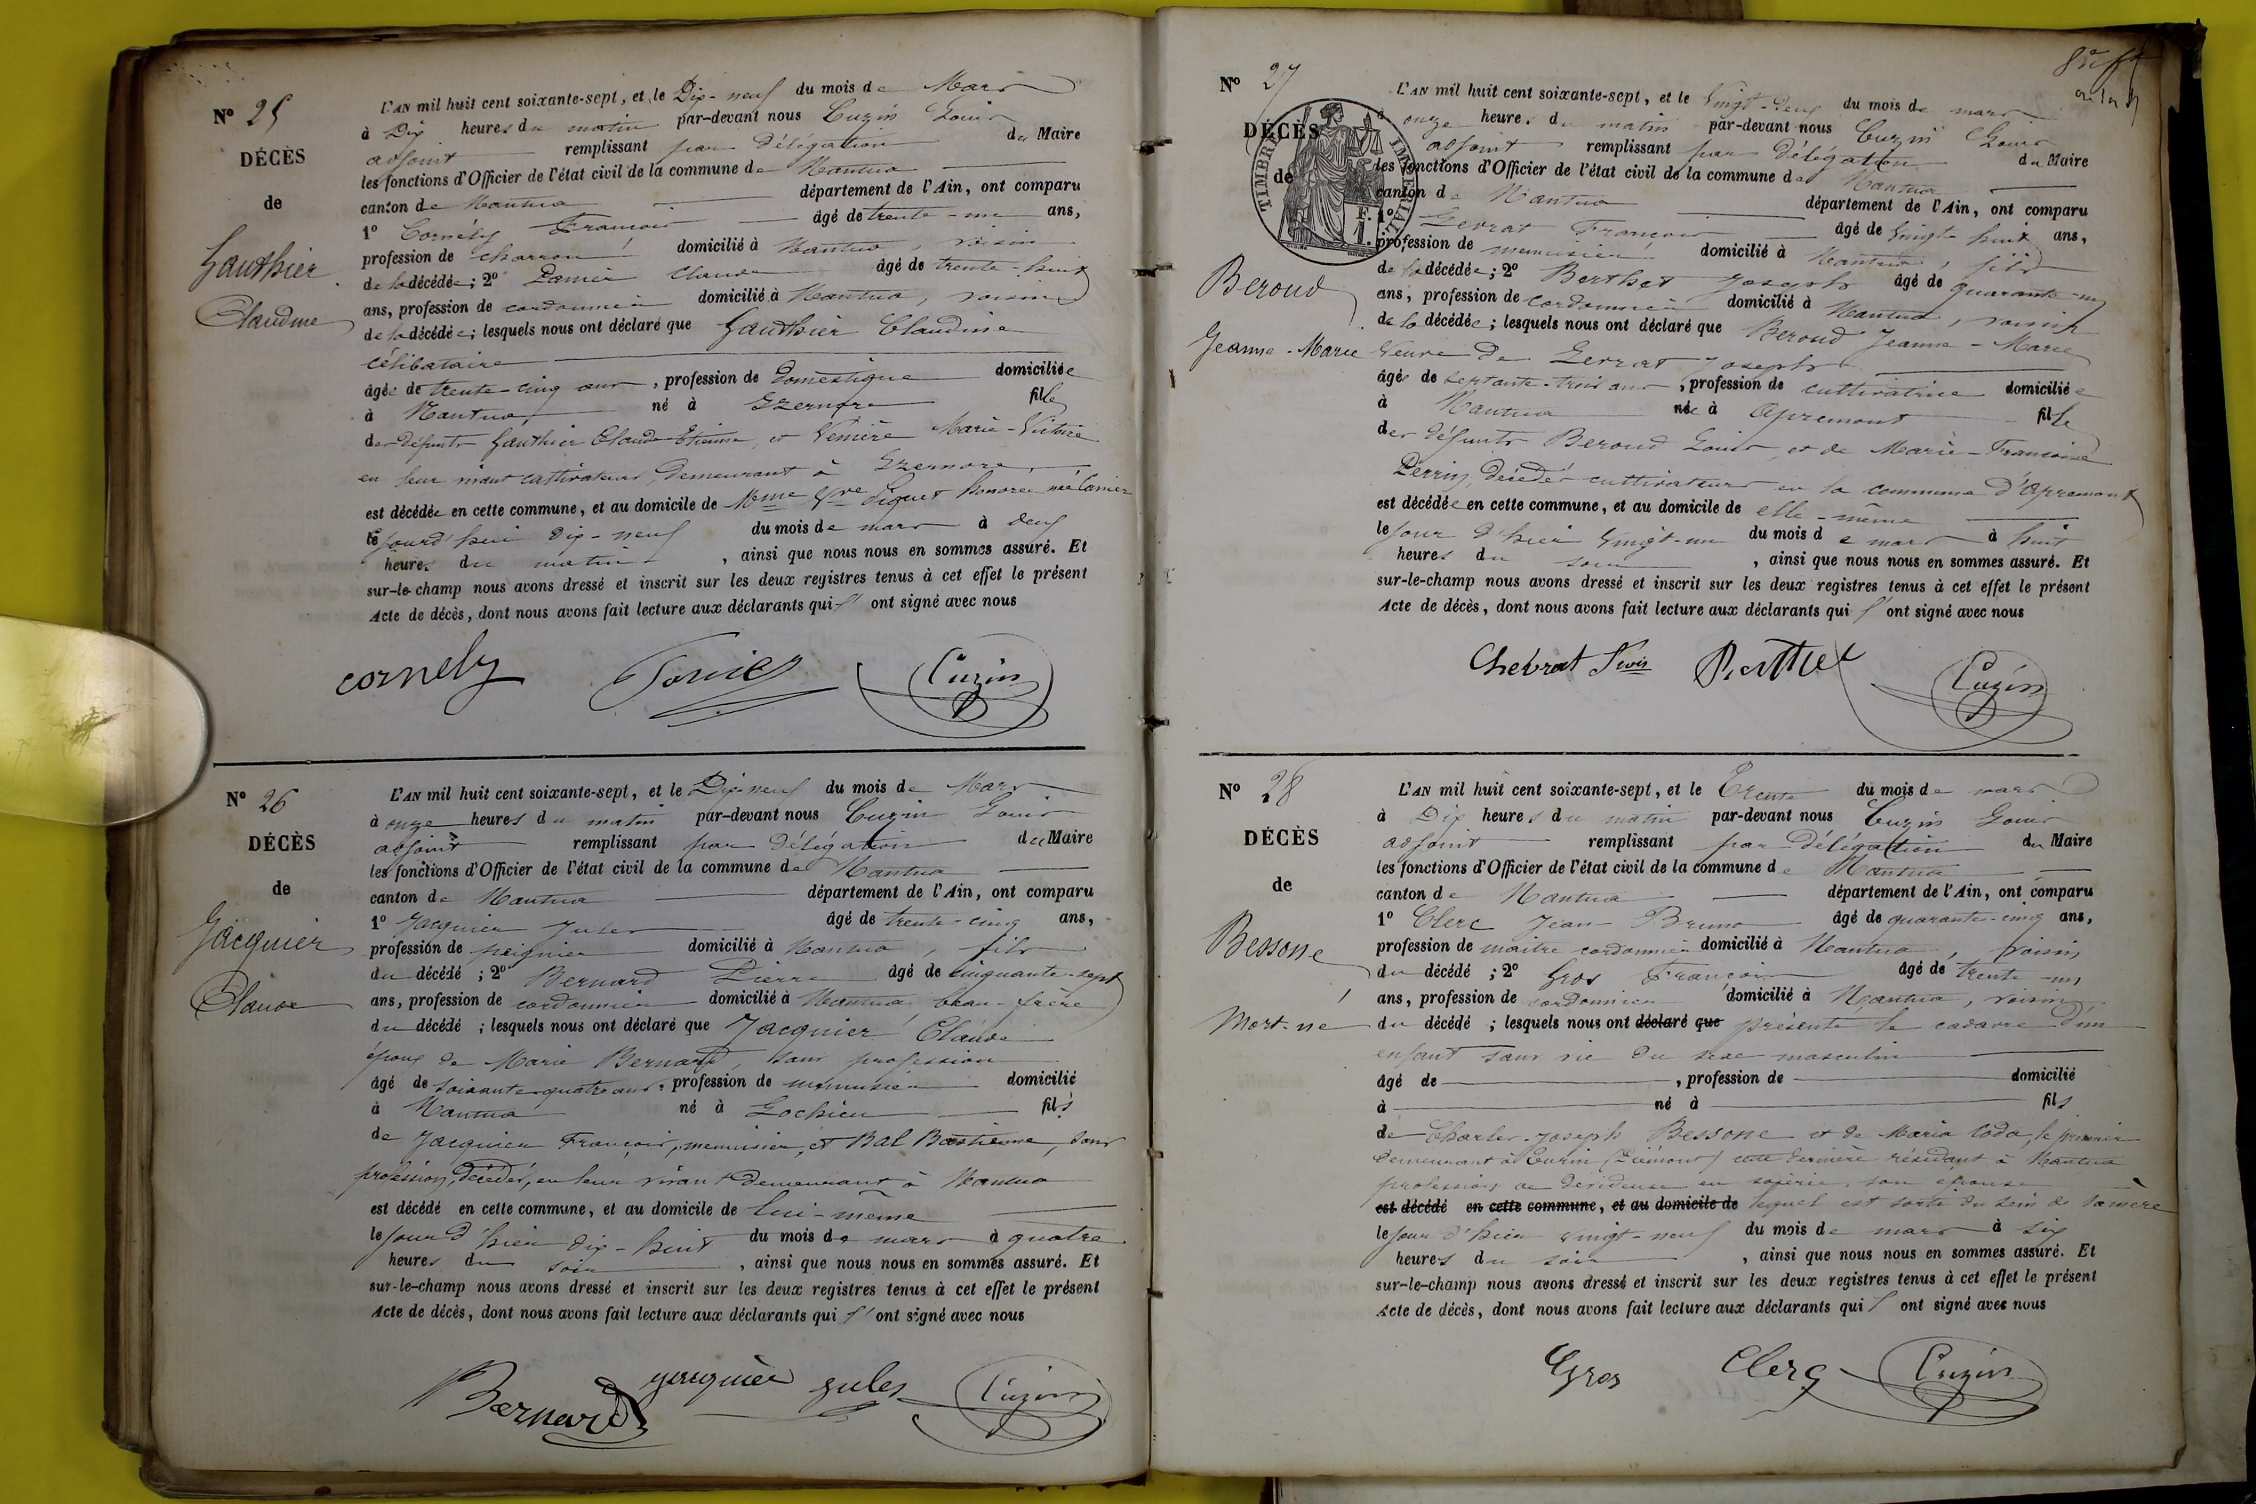 Nº 25
DÉCÈS
de
Gauthier
Claudine
L'AN mil huit cent soixante-sept, et le Dix-neuf du mois de Mars
à Dix heures du matin par-devant nous Cuzin Louis
adjoint remplissant par délégation du Maire
les fonctions d'Officier de l'état civil de la commune de Nantua
canton de Nantua département de l'Ain, ont comparu
1º Cornély François âgé de trente-un ans,
profession de charron domicilié à Nantua, voisin
de la décédée; 2º Claude âgé de trente-huit
ans, profession de cordonnier domicilié à Nantua, voisin
de la décédée; lesquels nous ont déclaré que Gauthier Claudine
célibataire
âgée de trente-cinq ans, profession de Domestique domiciliée
à Nantua, né à Izernore fille
des défunts Gauthier Claude-Etienne, et Marie-Victoire
en leur vivant cultivateurs, demeurant à Izernore,
est décédée en cette commune, et au domicile de Mme Vve Piquet honorée née
le jourd'hui dix-neuf du mois de mars à deux
heures du matin, ainsi que nous nous en sommes assuré. Et
sur-le-champ nous avons dressé et inscrit sur les deux registres tenus à cet effet le présent
Acte de décès, dont nous avons fait lecture aux déclarants qui l' ont signé avec nous
cornely Cuzin
Nº 26
DÉCÈS
de
Jacquier
Claude
L'AN mil huit cent soixante-sept, et le Dix-neuf du mois de Mars
à onze heures du matin par-devant nous Cuzin Louis
adjoint remplissant par délégation du Maire
les fonctions d'Officier de l'état civil de la commune de Nantua
canton de Nantua département de l'Ain, ont comparu
1º Jacquier Jules âgé de trente-cinq ans,
profession de peignier domicilié à Nantua, fils
du décédé; 2º Bernard Pierre âgé de cinquante-sept
ans, profession de cordonnier domicilié à Nantua beau-frère
du décédé; lesquels nous ont déclaré que Jacquier Claude
époux de Marie Bernard, sans profession
âgé de soixante-quatre ans, profession de menuisier domicilié
à Nantua né à Lochieu fils
de Jacquier François, menuisier, et Bal Bastienne, sans
profession, décédés, en leur vivant demeurant à Nantua
est décédé en cette commune, et au domicile de lui-même
le jour d'hier dix-huit du mois de mars à quatre
heures du soir, ainsi que nous nous en sommes assuré. Et
sur-le-champ nous avons dressé et inscrit sur les deux registres tenus à cet effet le présent
Acte de décès, dont nous avons fait lecture aux déclarants qui l' ont signé avec nous
Bernard jacquier jules Cuzin
Nº 27
DÉCÈS
de
TIMBRE IMPÉRIAL
Beroud
Jeanne-Marie
L'AN mil huit cent soixante-sept, et le Vingt-deux du mois de mars
à onze heures du matin par-devant nous Cuzin Louis
adjoint remplissant par délégation du Maire
les fonctions d'Officier de l'état civil de la commune de Nantua
canton de Nantua département de l'Ain, ont comparu
1º François âgé de Vingt-huit ans,
profession de menuisier domicilié à Nantua, fils
de la décédée; 2º Berthet Joseph âgé de quarante-un
ans, profession de cordonnier domicilié à Nantua, voisin
de la décédée; lesquels nous ont déclaré que Beroud Jeanne-Marie
Veuve de Joseph
âgée de septante-trois ans, profession de cultivatrice domiciliée
à Nantua née à Apremont fille
des défunts Beroud Louis, et de Marie-Françoise
Perrin, décédés cultivateurs en la commune d'Apremont
est décédée en cette commune, et au domicile de elle-même
le jour d'hier Vingt-un du mois de mars à huit
heures du soir, ainsi que nous nous en sommes assuré. Et
sur-le-champ nous avons dressé et inscrit sur les deux registres tenus à cet effet le présent
Acte de décès, dont nous avons fait lecture aux déclarants qui l' ont signé avec nous
Chevrat Berthet Cuzin
Nº 28
DÉCÈS
de
Bessone
Mort-né
L'AN mil huit cent soixante-sept, et le Trente du mois de mars
à Dix heures du matin par-devant nous Cuzin Louis
adjoint remplissant par délégation du Maire
les fonctions d'Officier de l'état civil de la commune de Nantua
canton de Nantua département de l'Ain, ont comparu
1º Clerc Jean-Bruno âgé de quarante-cinq ans,
profession de maître cordonnier domicilié à Nantua, voisin
du décédé; 2º Gros François âgé de trente-un
ans, profession de cordonnier domicilié à Nantua, voisin
du décédé; lesquels nous ont déclaré que présenté le cadavre d'un
enfant sans vie du sexe masculin
âgé de , profession de domicilié
à né à fils
de Charles-Joseph Bessone et de Maria Coda, le premier
demeurant à Turin (Piémont) cette dernière résidant à Nantua
profession de dévideuse en soierie, son épouse
est décédé en cette commune, et au domicile de lequel est sorti du sein de sa mère
le jour d'hier vingt-neuf du mois de mars à six
heures du soir, ainsi que nous nous en sommes assuré. Et
sur-le-champ nous avons dressé et inscrit sur les deux registres tenus à cet effet le présent
Acte de décès, dont nous avons fait lecture aux déclarants qui l' ont signé avec nous
Gros Clerc Cuzin